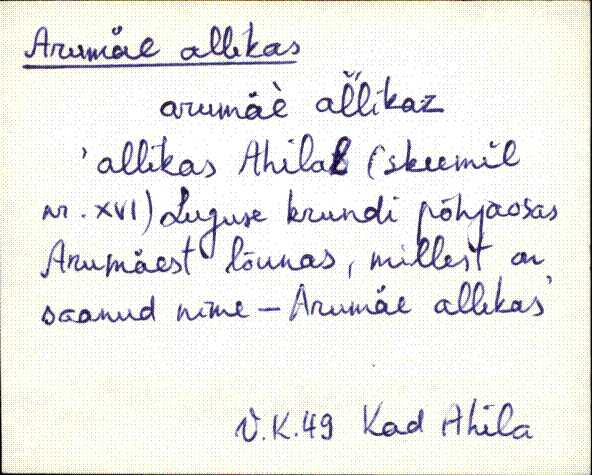 Arumäe allikas
arumäè al̆l̆ikaz
'allikas Ahilal (skeemil
nr. XVI) Luguse krundi põhjaosas
Arumäest lõunas, millest on
saanud nime – Arumäe allikas'
V.K.49 Kad Ahila